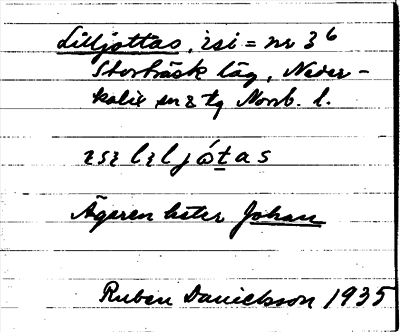 Lilljottas, isi = nr 3⁶
Storträsk läg, Neder-
kalix sn o tg Norrb. l.
Ägaren heter Johan
Ruben Danielsson 1935